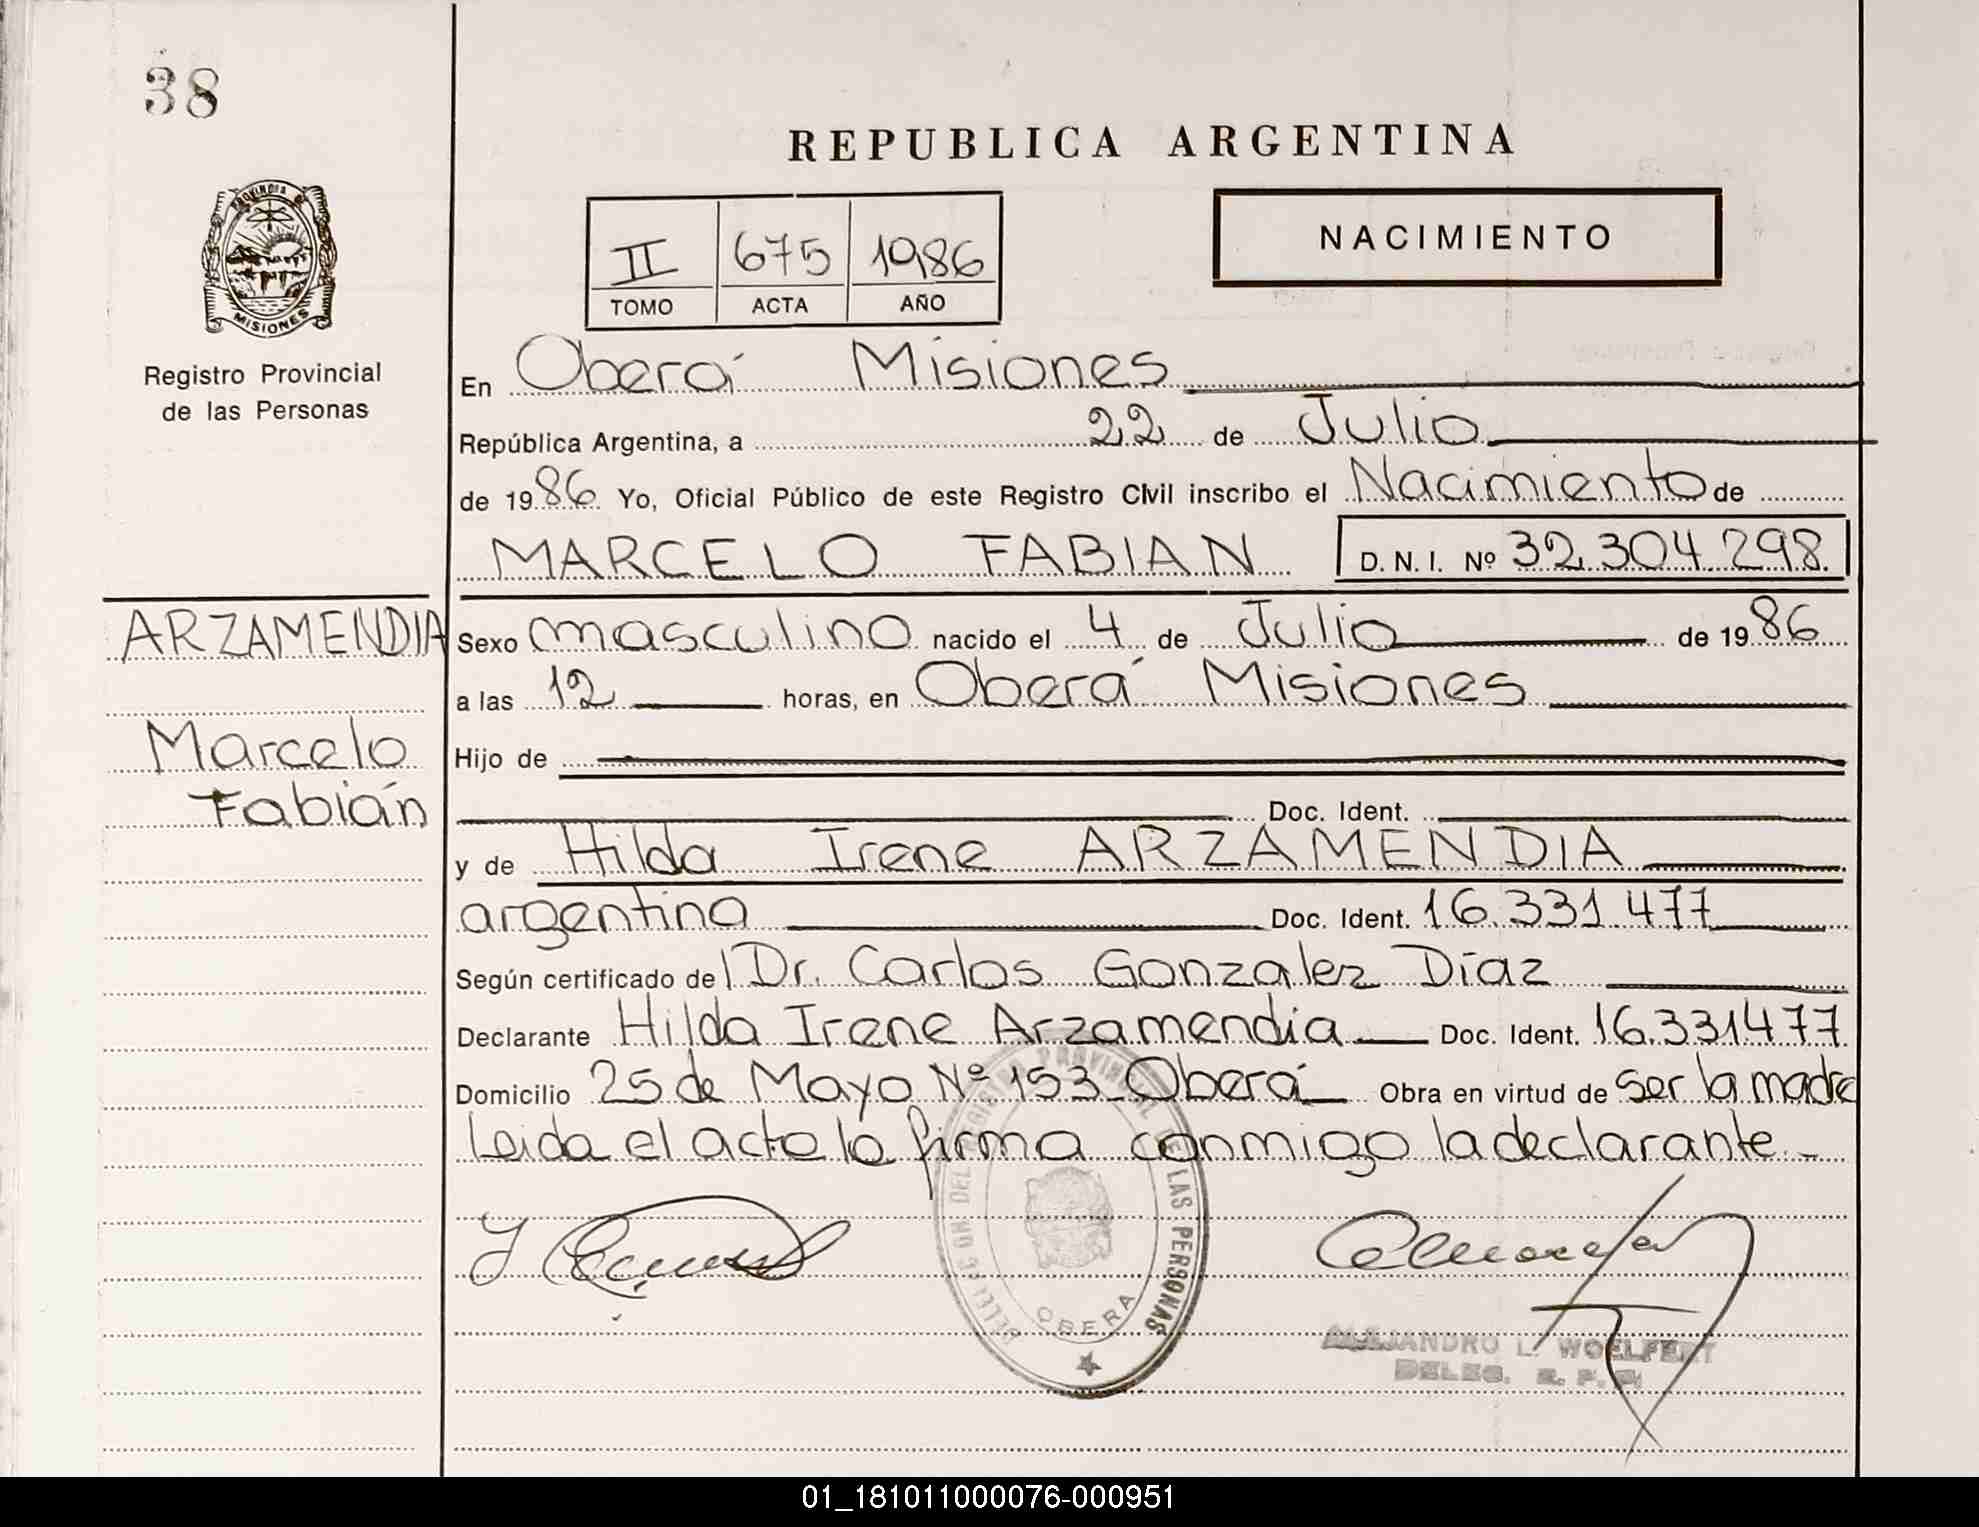 38
PROVINCIA DE
MISIONES
Registro Provincial
de las Personas
REPUBLICA ARGENTINA
II 675 1986
TOMO ACTA AÑO
NACIMIENTO
En Oberá Misiones
República Argentina, a 22 de Julio
de 1986 Yo, Oficial Público de este Registro Civil inscribo el Nacimiento de
MARCELO FABIAN D. N. I. Nº 32.304.298.
ARZAMENDIA
Marcelo
Fabián
Sexo masculino nacido el 4 de Julio de 1986
a las 12 horas, en Oberá Misiones
Hijo de
Doc. Ident.
y de Hilda Irene ARZAMENDIA
argentina Doc. Ident. 16.331.477
Según certificado del Dr. Carlos Gonzalez Díaz
Declarante Hilda Irene Arzamendia Doc. Ident. 16.331477
Domicilio 25 de Mayo Nº 153 Oberá Obra en virtud de ser la madre
Leida el acta la firma conmigo la declarante.-
DELEGACION DEL REGISTRO PROVINCIAL DE LAS PERSONAS
OBERA
ALEJANDRO L. WOELFERT
DELEG. R. P. P.
01_181011000076-000951